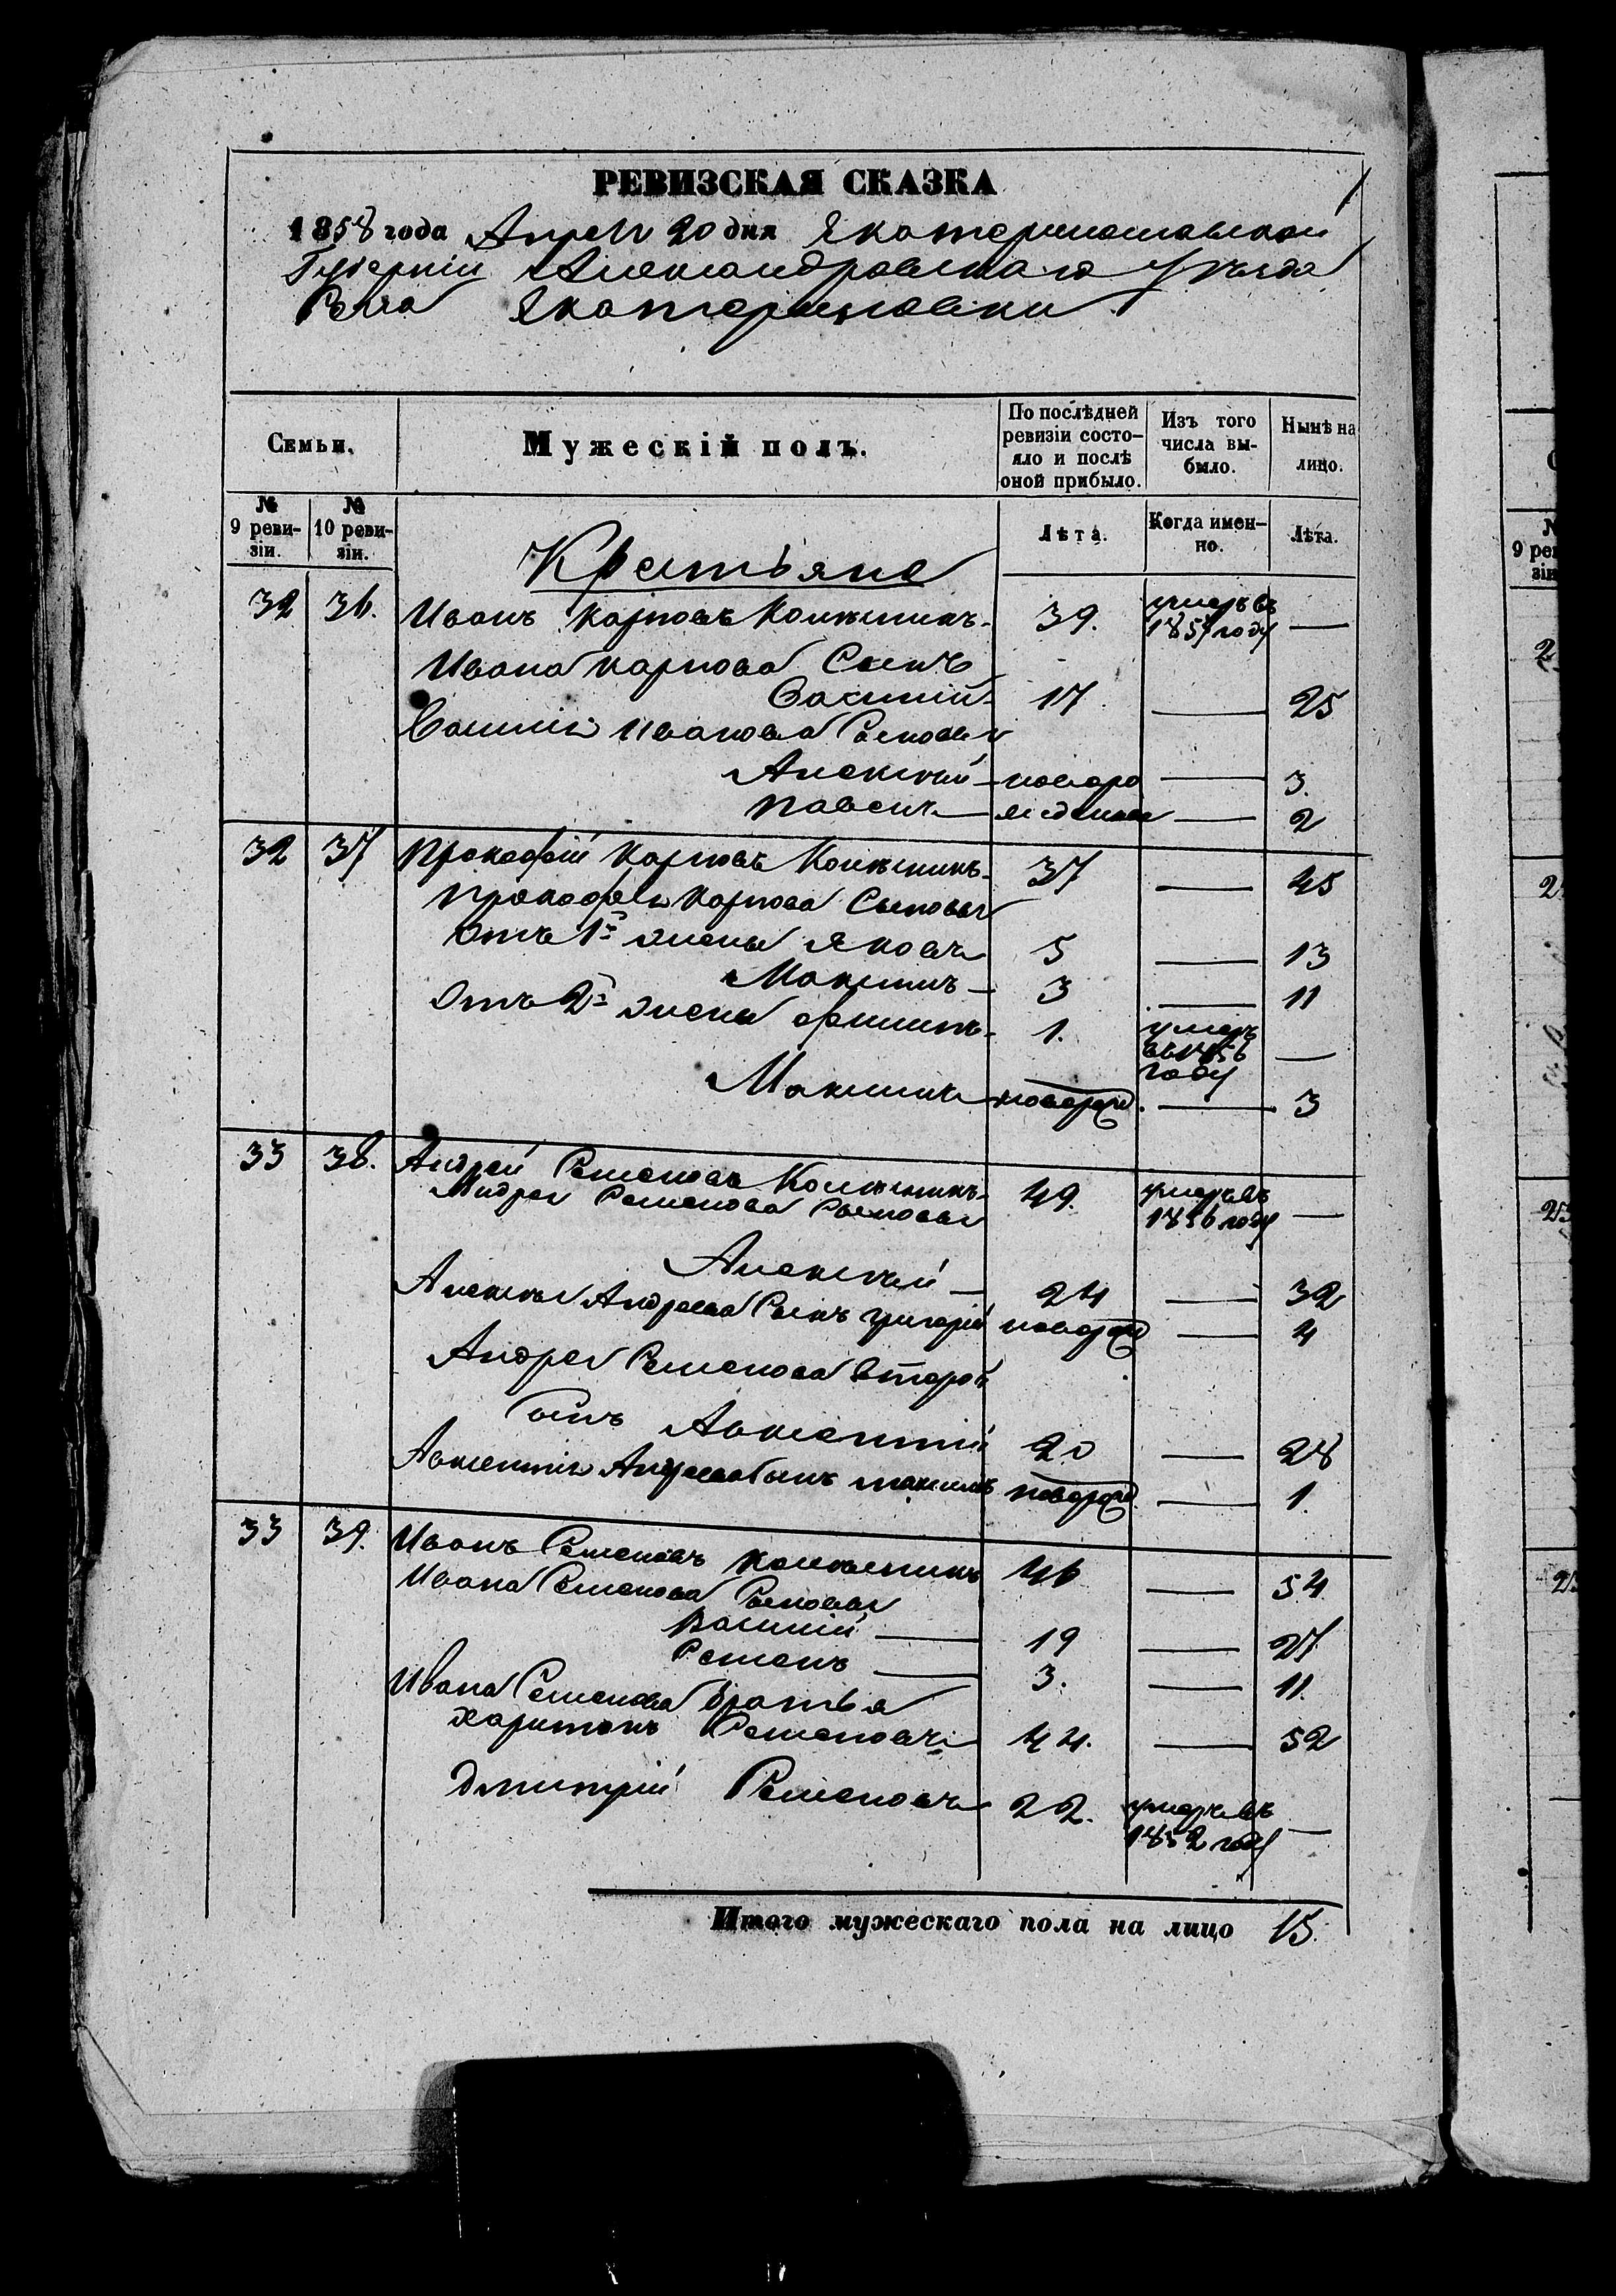 РЕВИЗСКАЯ СКАЗКА
1858 года Апреля 20 дня Екатеринославской
Губернии Александровскаго Уезда
Села Екатериновки
Семьи.
Мужескій полъ.
По послѣдней ревизіи состо-
яло и послѣ
оной прибыло.
Изъ того
числа вы-
было.
Нынѣ на
лицо.
№ 9 реви-
зіи.
№ 10 реви-
зіи.
Лѣта.
Когда имен-
но.
Лѣта.
Крестьяне
32 36. Иванъ Карповъ 39. умеръ въ 1857 году —
Ивана Карпова Сынъ
Василій 17 — 25
Василія Иванова Сыновья
Алексѣй новоро — 3.
Павелъ жденные — 2
32 37 Прокофій Карповъ 37 — 45
Прокофія Карпова Сыновья
Отъ 1й жены Яковъ 5 — 13
Максимъ 3 — 11
Отъ 2й жены Филипъ 1. умеръ въ 1856 году —
Максимъ новорож. — 3
33 38. Андрей Семеновъ 49. умеръ въ 1856 году —
Андрея Семенова Сыновья
Алексѣй — 24 — 32
Алексѣя Андреева Сынъ Григорій новорож — 4
Андрея Семенова второй
сынъ Авксентій 20 — 28
Авксентія Андреева Сынъ Максимъ новорож. — 1.
33 39. Иванъ Семеновъ 46 — 54.
Ивана Семенова Сыновья
Василій — 19 — 27
Семенъ — 3. — 11.
Ивана Семенова братья
Харитонъ Семеновъ 44. — 52
Дмитрій Семеновъ 22. умеръ въ 1852 году —
Итого мужескаго пола на лицо 15.